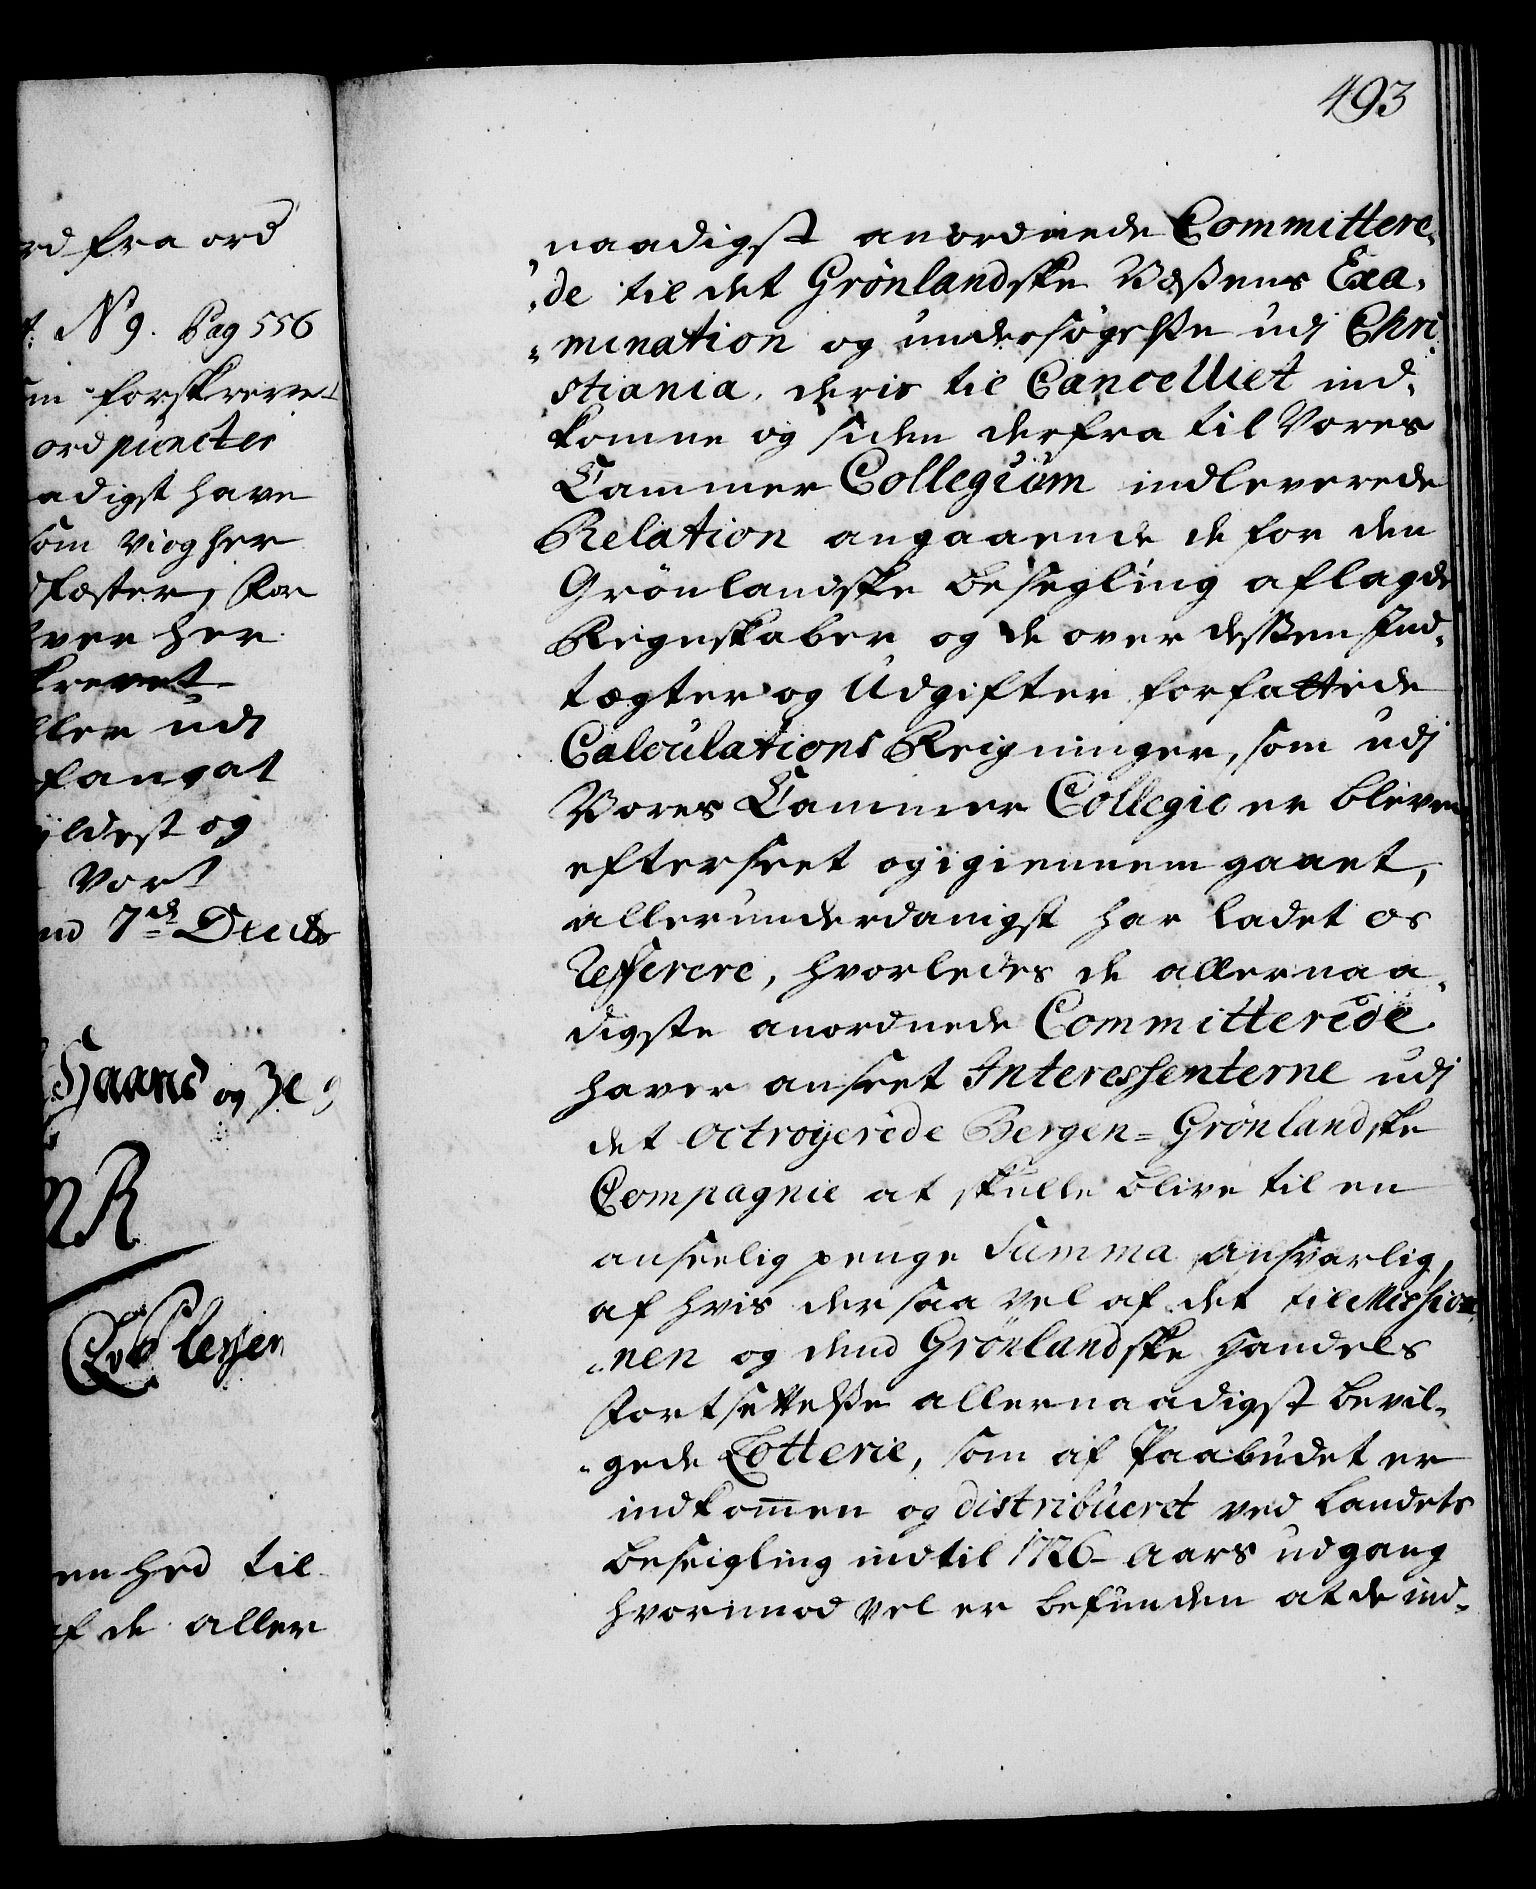 493
rd fra ord
N 9. Pag 556
forskreven
ord puncter
adigst have
som vi og her
fæster, for
ver her
krevet
ller udi
fangat
yldest og
Vort
nd 7de Decbr
Haans og
R
CvPlessen
enhed til
af de aller
naadigst anordnede Committere-
de til det Grönlandske Væsens Exa-
mination og undersøgelse udi Chri-
stiania, deris til Cancelliet ind-
komne og siden derfra til Vores
Cammer Collegium indleverede
Relation angaaende de for den
Grönlandske besegling aflagde
Regnskaber og de over dessen Ind-
tægter og Udgifter forfattede
Calculations Reigninger, som udi
Vores Cammer Collegio er bleven
efterseet og igiennemgaaet,
allerunderdanigst har ladet os
Refferere, hvorledes de allernaa-
digste anordnede Committerede
haver anseet Interessenterne udi
det octroyerede Bergen-Grönlandske
Compagnie at skulle blive til en
anseelig penge Summa ansvarlig,
af hvis der saa vel af det til Mission-
nen og dend Grönlandske Handels
fortsettelse allernaadigst bevil-
gede Lotterie, som af Paabudet er
indkommen og distribueret ved Landets
beseigling indtil 1726 Aars udgang
hvorimod vel er befunden at de ind-